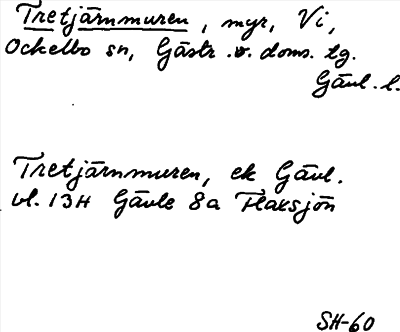 Tretjärnmuren, myr, Vi,
Ockelbo sn, Gästr. v. doms. tg.
Gävl. l.
Tretjärnmuren, ek Gävl.
bl. 13H Gävle 8a Flaksjön
SH-60